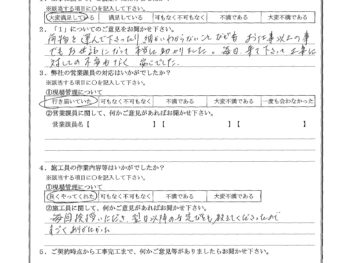 ※該当する項目に〇を記入して下さい。
大変満足してる 満足している 可もなく不可もなく 不満である 大変不満である
2.「1」についてのご意見をお聞かせ下さい。
荷物を運んで下さったり 細かいわからないことでも お仕事以上の事
でもお世話になり 本当に助かりました。毎日 来て下さり 工事に
対しての不安もなく 過ごせた。
3.弊社の営業課員の対応はいかがでしたか?
※該当する項目に〇を記入して下さい。
①現場管理について
行き届いていた 可もなく不可もなく 不満である 大変不満である 一度も会わなかった
②営業課員に関して、何かご意見があればお聞かせ下さい。
営業課員名【 】【 】【 】
4.施工員の作業内容等はいかがでしたか?
※該当する項目に〇を記入して下さい。
①現場管理について
良くやってくれた 可もなく不可もなく 不満である 大変不満である
②施工員に関して、何かご意見があればお聞かせ下さい。
毎回挨拶いただき
すごくありがたかった
5.ご契約時点から工事完工まで、何かご意見等がありましたらお聞かせ下さい。